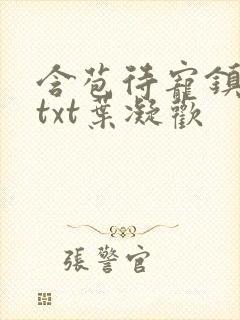 含苞待寵鎮
txt葉凝歡
張警官